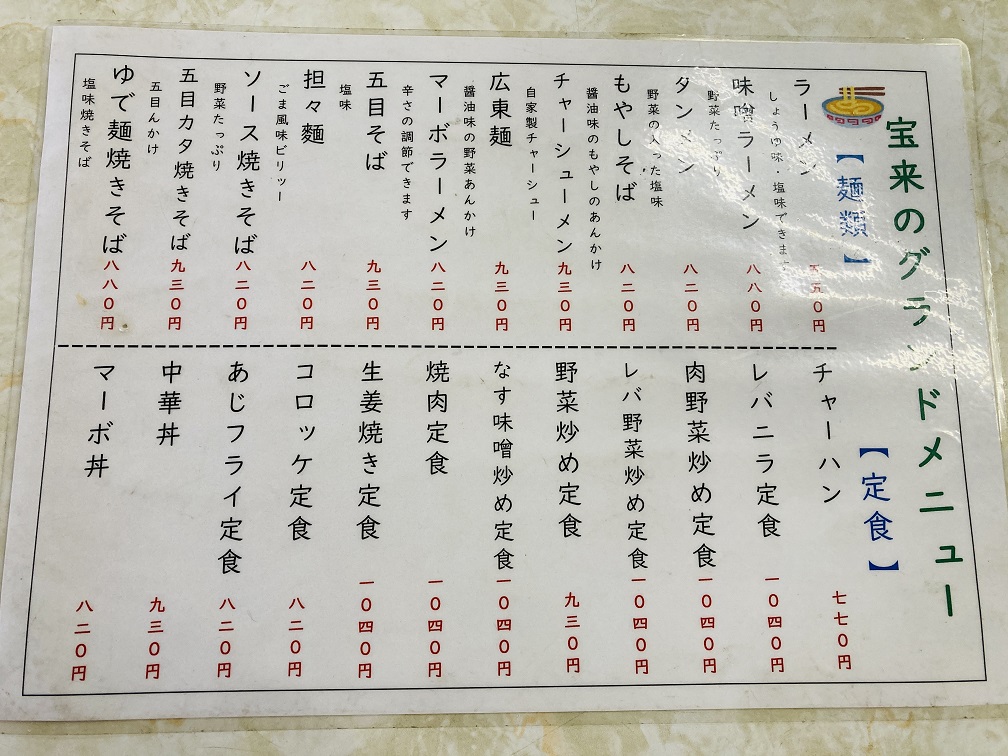 宝来のグランドメニュー
【麺類】
ラーメン
しょうゆ味・塩味できます
五五〇円
味噌ラーメン
野菜たっぷり
八八〇円
タンメン
野菜の入った塩味
八二〇円
もやしそば
醤油味のもやしのあんかけ
八二〇円
チャーシューメン
自家製チャーシュー
九三〇円
広東麺
醤油味の野菜あんかけ
九三〇円
マーボラーメン
辛さの調節できます
八二〇円
五目そば
塩味
九三〇円
担々麺
ごま風味ピリッー
八二〇円
ソース焼きそば
野菜たっぷり
八二〇円
五目カタ焼きそば
五目んかけ
九三〇円
ゆで麺焼きそば
塩味焼きそば
八八〇円
【定食】
チャーハン
七七〇円
レバニラ定食
一〇四〇円
肉野菜炒め定食
一〇四〇円
レバ野菜炒め定食
一〇四〇円
野菜炒め定食
九三〇円
なす味噌炒め定食
一〇四〇円
焼肉定食
一〇四〇円
生姜焼き定食
一〇四〇円
コロッケ定食
八二〇円
あじフライ定食
八二〇円
中華丼
九三〇円
マーボ丼
八二〇円